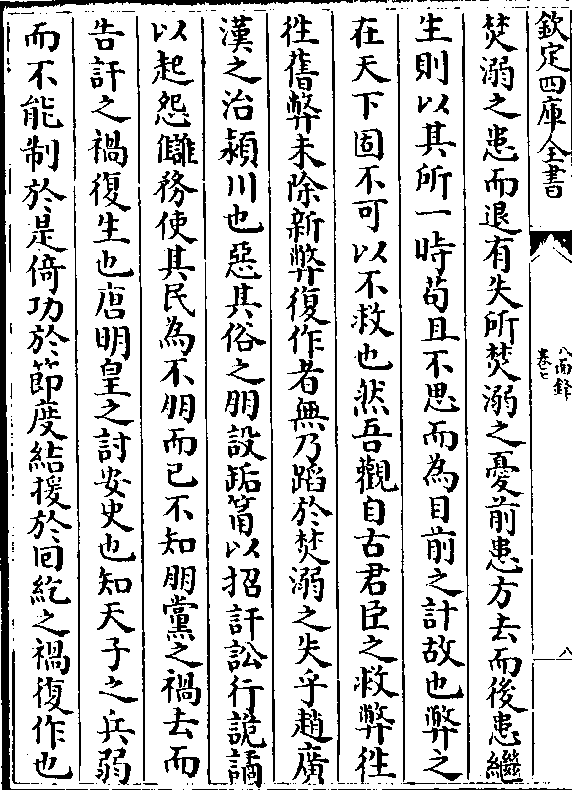 欽定四庫全書
八面鋒
卷七
八
焚溺之患而退有失所焚溺之憂前患方去而後患繼
生則以其所一時茍且不思而為目前之計故也弊之
在天下固不可以不救也然吾觀自古君臣之救弊徃
徃舊弊未除新弊復作者無乃蹈於焚溺之失乎趙廣
漢之治潁川也惡其俗之朋設缿筩以招訐訟行詭譎
以起怨讎務使其民為不朋而已不知朋黨之禍去而
告訐之禍復生也唐明皇之討安史也知天子之兵弱
而不能制於是倚功於節度結援於回紇之禍復作也